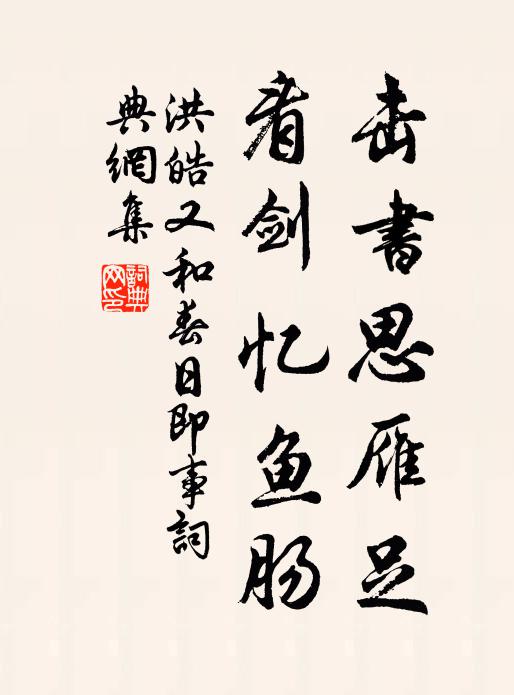 击書思雁足
看剑忆鱼肠
洪皓又和春日即事詞
典網集
詞典
网印